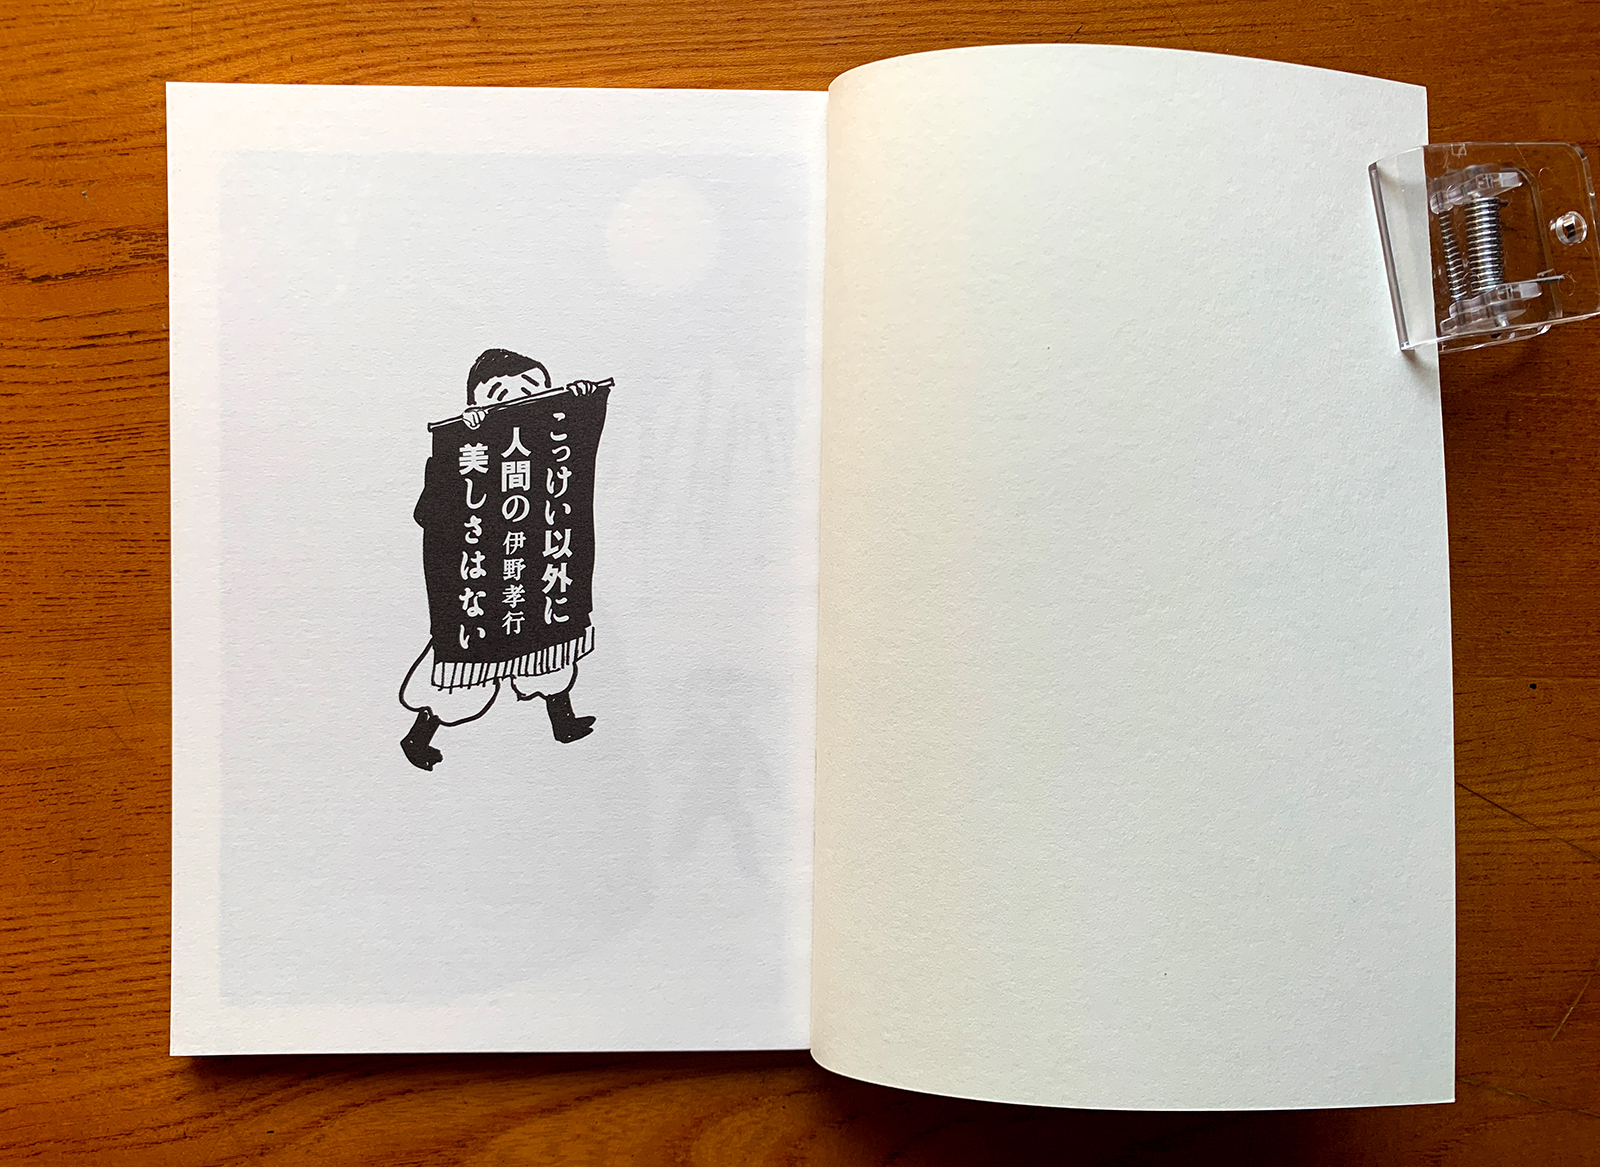 こっけい以外に
人間の 伊野孝行
美しさはない